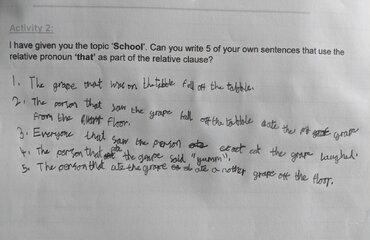 Activity 2:
I have given you the topic 'School'. Can you write 5 of your own sentences that use the
relative pronoun 'that' as part of the relative clause?
1. The grape that was on the tabble fell off the tabble.
2. The person that saw the grape fall off the tabble ate the grape
from the floor.
3. Everyone that saw the person eat the grape laughed.
4. The person that ate the grape said "yumm".
5. The person that ate the grape ate a nother grape off the floor.